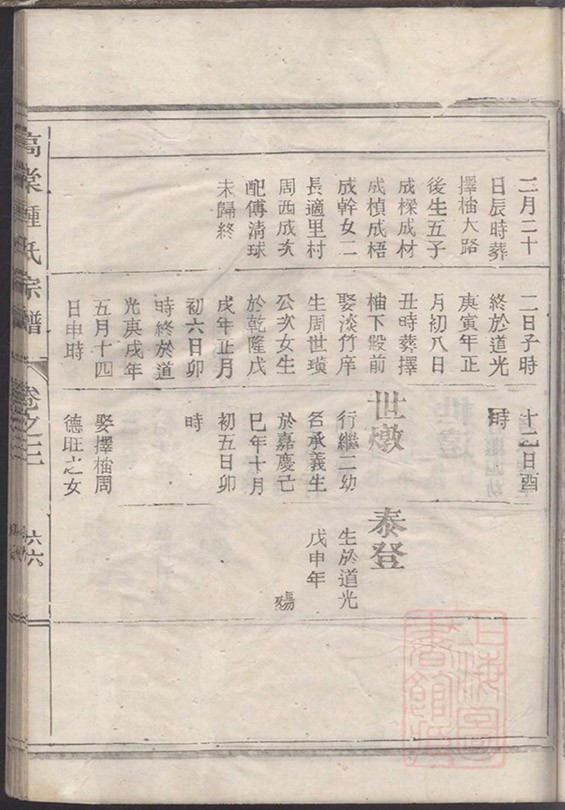 二月二十
日辰時葬
擇柚大路
後生五子
成樑成材
成楨成梧
成幹女二
長適里村
周西成次
配傅清球
未歸終
二日子時
終於道光
庚寅年正
月初八日
丑時葬擇
柚下殿前
娶淡竹庠
生周世璜
公次女生
於乾隆戊
戌年正月
初六日卯
時終於道
光庚戌年
五月十四
日申時
十二日酉
時
世燉
行繼二幼
名承義生
於嘉慶己
巳年十月
初五日卯
時
娶擇柚周
德旺之女
泰登
生於道光
戊申年
殤
高棠鍾氏宗譜
卷之二
六六
上海圖書館藏